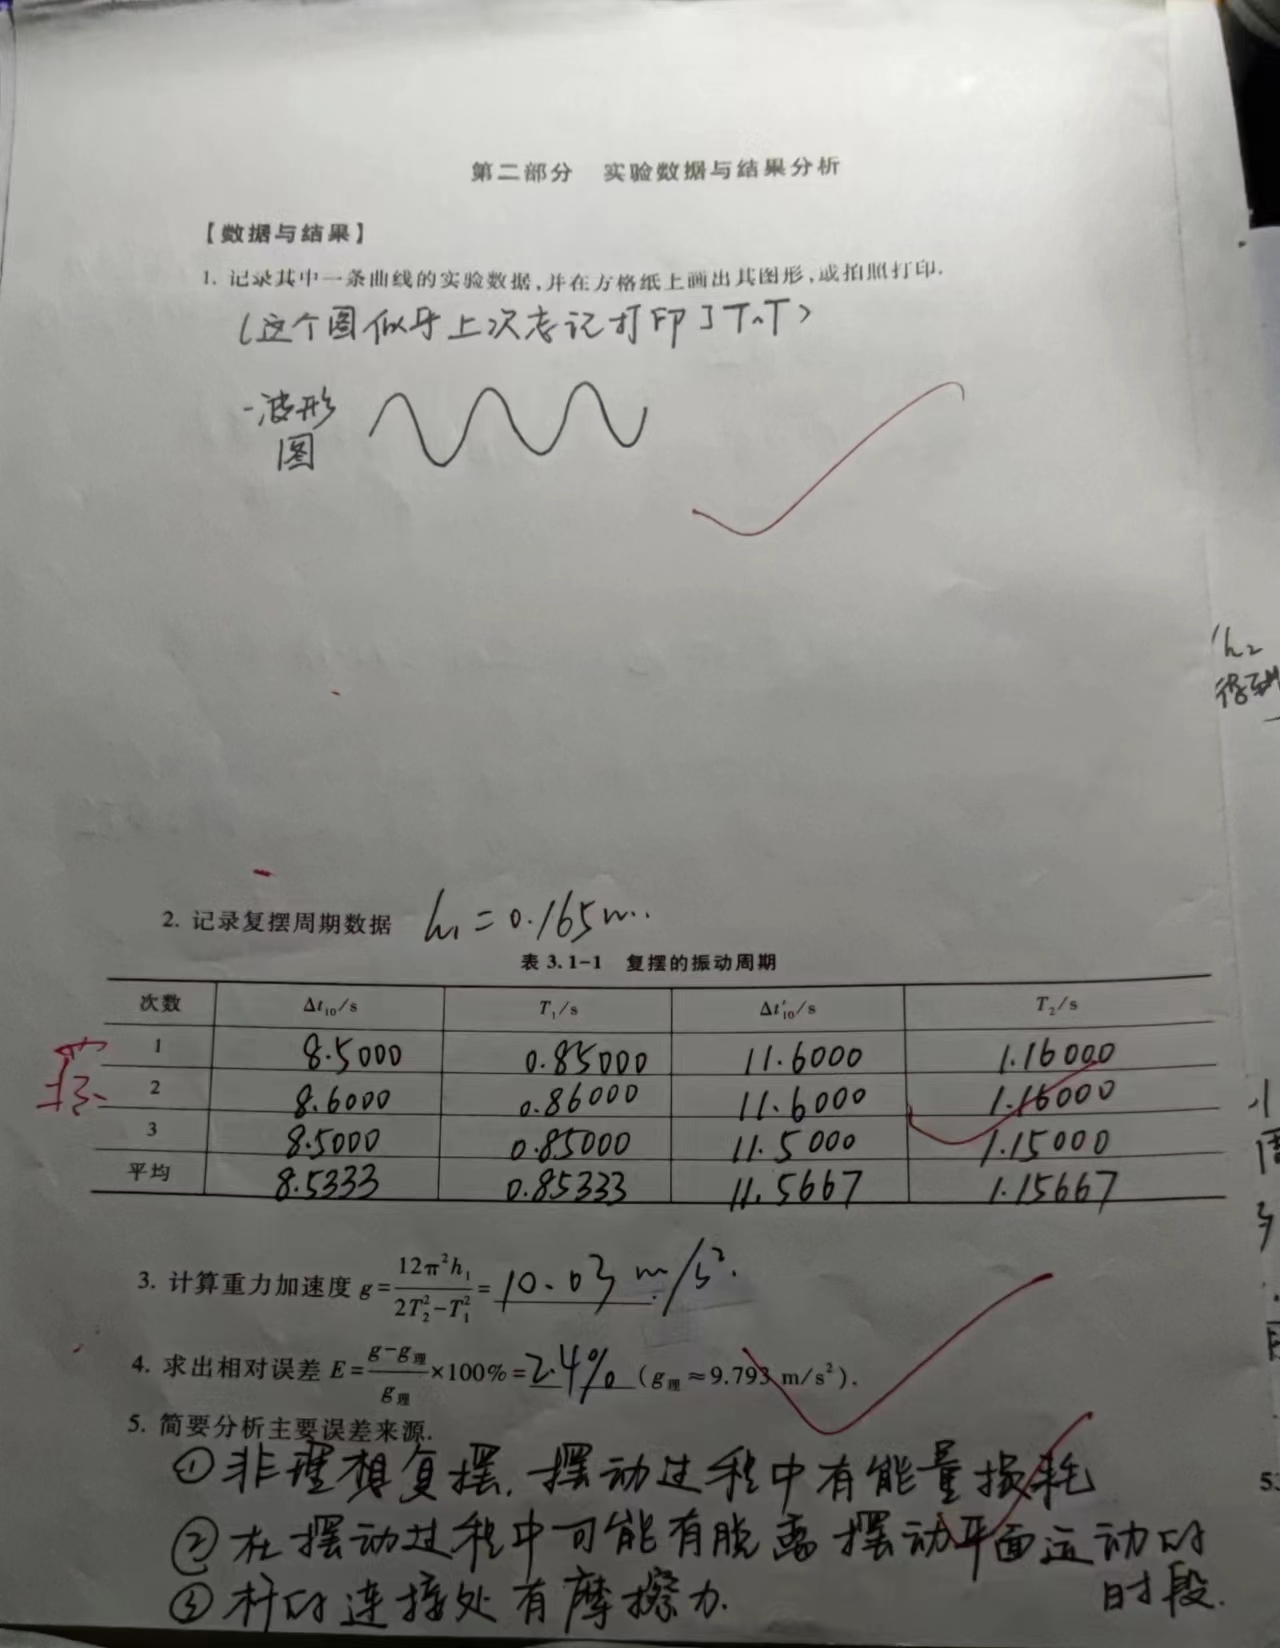 第二部分 实验数据与结果分析
【数据与结果】
1. 记录其中一条曲线的实验数据,并在方格纸上画出其图形,或拍照打印.
(这个图似乎上次忘记打印了T^T)
波形
图
h₂
得到
2. 记录复摆周期数据 h₁=0.165m.
表 3.1-1 复摆的振动周期
次数 Δt₁₀/s T₁/s Δt′₁₀/s T₂/s
1 8.5000 0.85000 11.6000 1.16000
2 8.6000 0.86000 11.6000 1.16000
3 8.5000 0.85000 11.5000 1.15000
平均 8.5333 0.85333 11.5667 1.15667
3. 计算重力加速度 g=12π²h₁/(2T₂²-T₁²)=10.03 m/s².
4. 求出相对误差 E=(g-g理)/g理×100%=2.4%(g理≈9.793 m/s²).
5. 简要分析主要误差来源.
①非理想复摆,摆动过程中有能量损耗
②在摆动过程中可能有脱离摆动平面运动的
时段.
③杆的连接处有摩擦力.